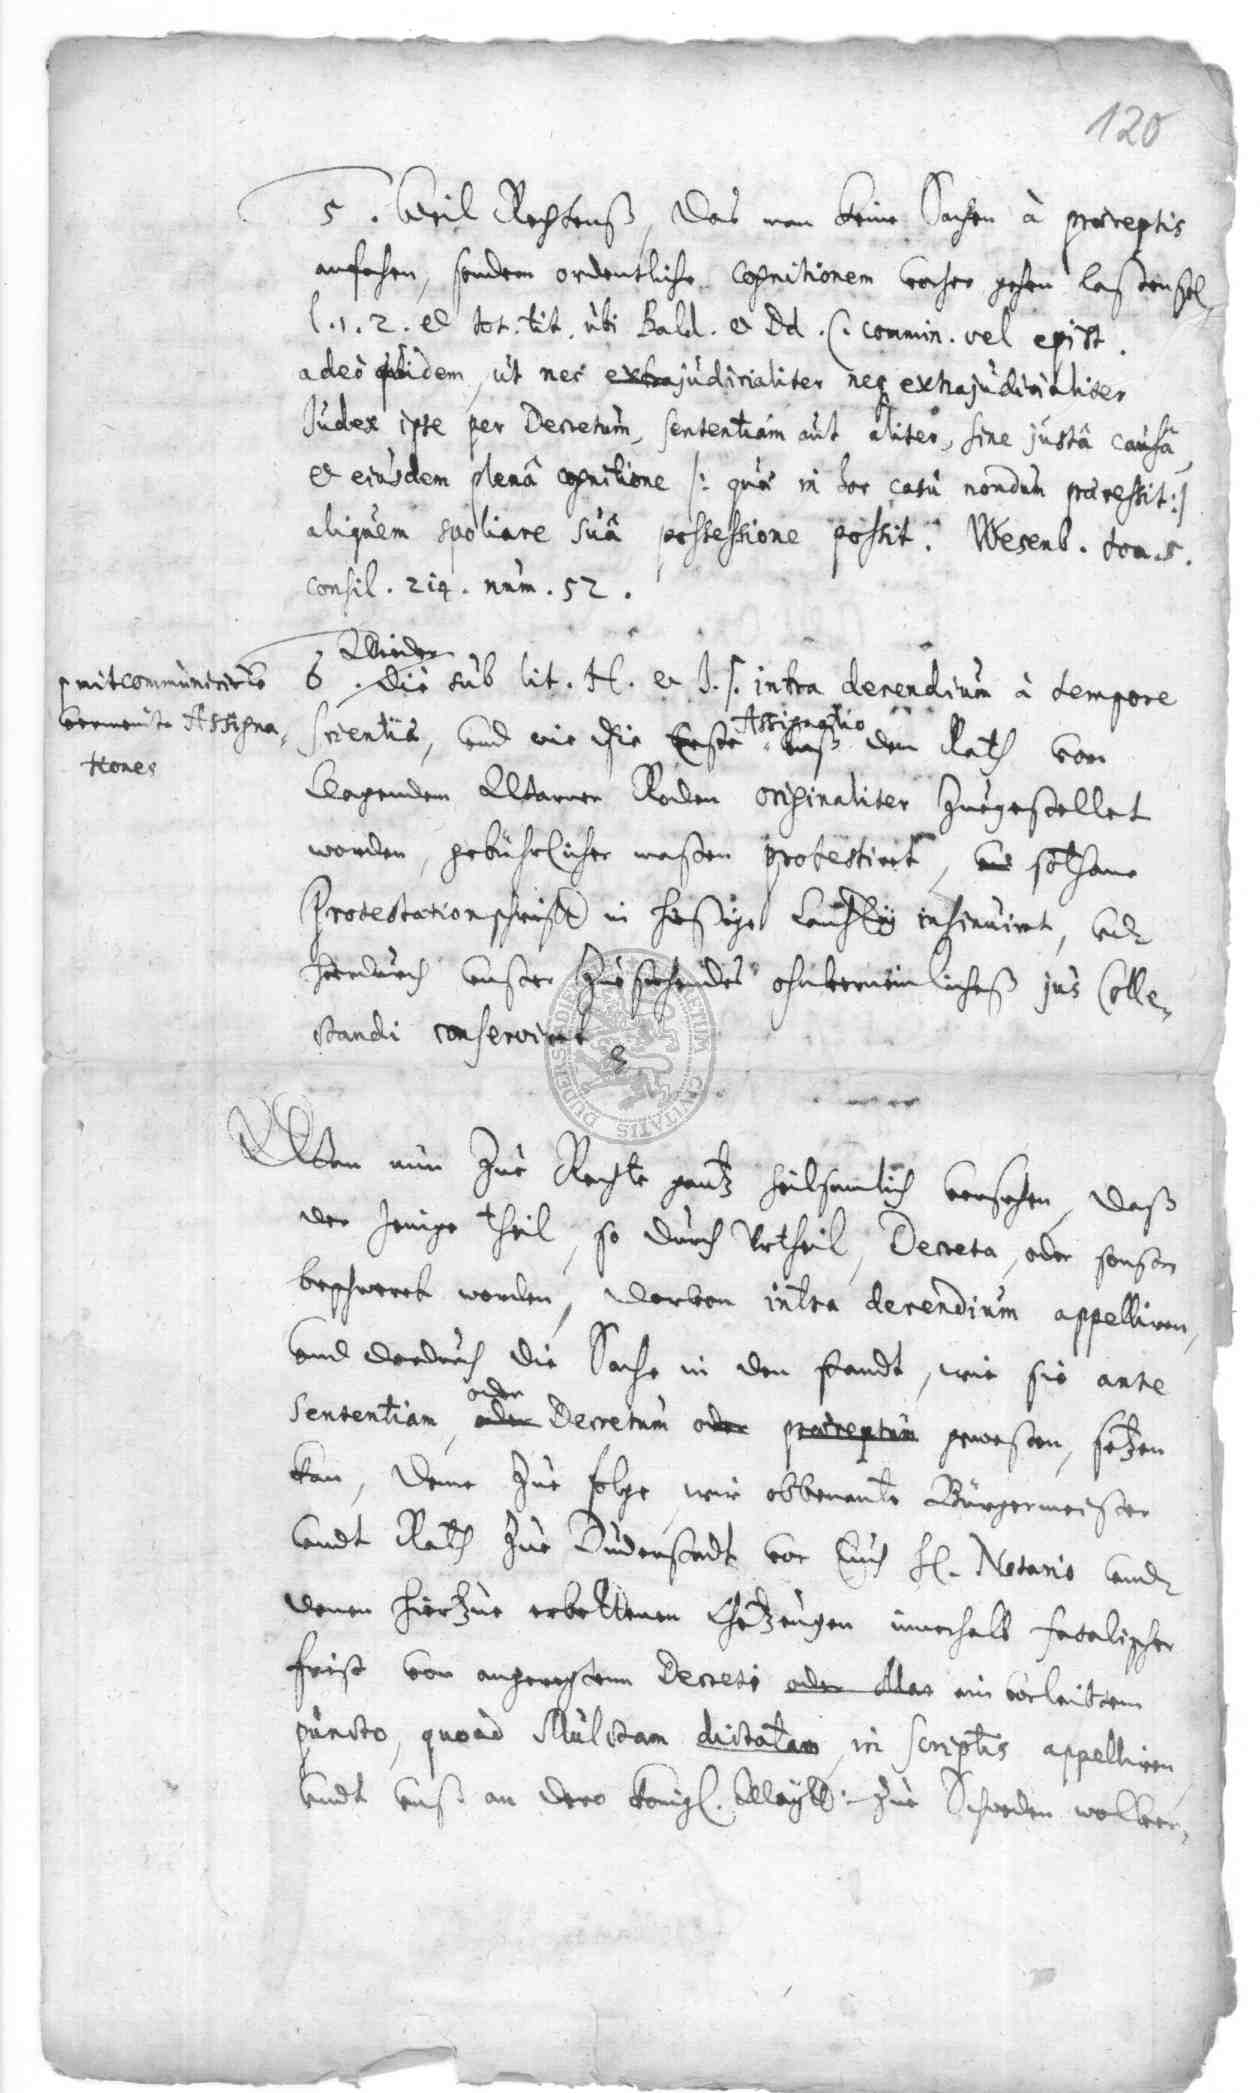 120
5. Weil Rechtens, das man keine Sachen à praeceptis
anfahen, sondern ordentliche cognitionem vorher gehen laßen sol,
l. 1. 2. et tot. tit. ubi Bald. et Dd. C. commin. vel epist.
adeò quidem, ut nec extrajudicialiter neq extrajudicialiter
Judex ipse per Decretum, sententiam aut aliter, sine justâ causâ,
et eiusdem plenâ cognitione /: quae in hoc casu nondum praecessit :/
aliquem spoliare suâ possessione possit. Wesenb. tom. 5.
consil. 214. num. 52.
Wieder
6. Die sub lit. H. et J. /. intra decendium à tempore
mitcommunicirte
vermeinte Assigna-
tiones
Scientiae, und wie die Erste Assignatio den Rath von
Clagendem Roden originaliter zugestellet
worden, gebührlicher maßen protestirt, sothane
Protestationschrift in hiesige Cantzley insinuirt, und
hierdurch unser zustehendes ohnverneinliches jus Colle-
ctandi conservirt
Wan nun zue Rechte gantz heilsamlich versehen, daß
der Jenige theil, so durch Urtheil, Decreta, oder sonsten
beschwert worden, darvon intra decendium appelliren,
und dardurch die Sache in den standt, wie sie ante
oder
sententiam, oder Decretum oder praeceptum gewesen, setzen
kan, Deme zue folge, wir obbenante Bürgermeister
undt Rath zue Duderstadt vor Euch H. Notario und
denen hierzue erbettenen Gezeugen innerhalb fatalischer
frist von angeregtem Decreto oder ein
puncto, quoad Mulctam dictatam, in Scriptis appelliren
undt unß an dero Königl. Maytt: zue Schweden wolver-